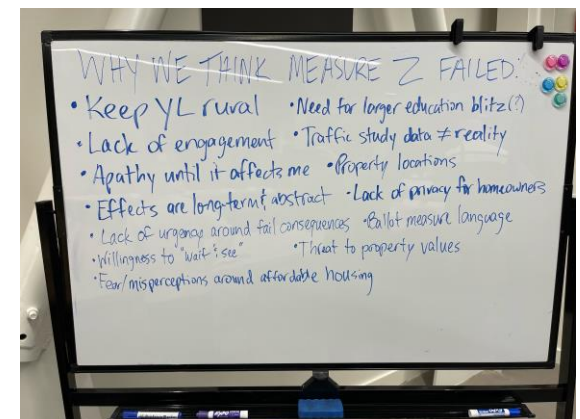 WHY WE THINK MEASURE Z FAILED:
• Keep YL rural
• Lack of engagement
• Apathy until it affects me
• Effects are long-term & abstract
• Lack of urgency around fail consequences
• Willingness to "wait & see"
• Fear/misperceptions around affordable housing
• Need for larger education blitz(?)
• Traffic study data ≠ reality
• Property locations
• Lack of privacy for homeowners
• Ballot measure language
• Threat to property values